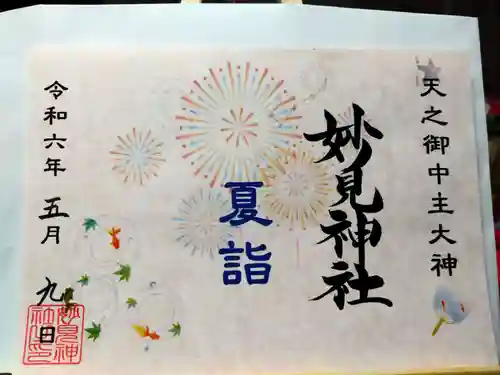 天之御中主大神
妙見神社
夏詣
令和六年 五月 九日
妙見神社之印